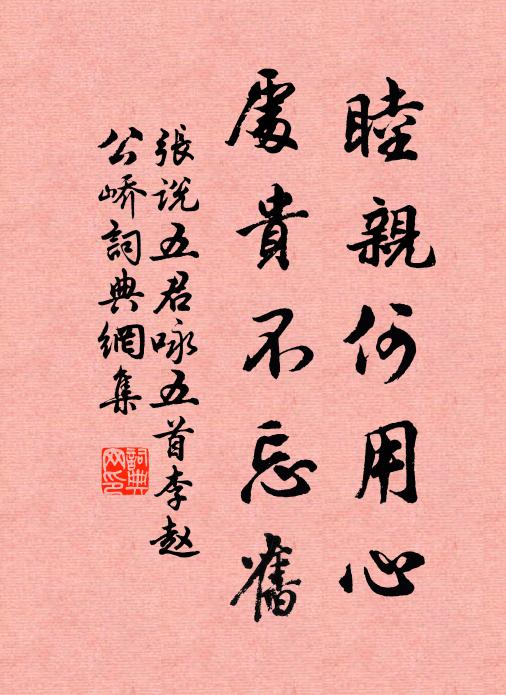 睦親何用心
處貴不忘舊
張说五君咏五首李赵
公峤詞典網集
詞典网印